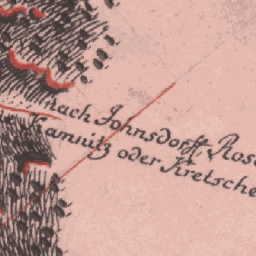 nach Johnsdorff, Rose
Kamnitz oder Kretsche